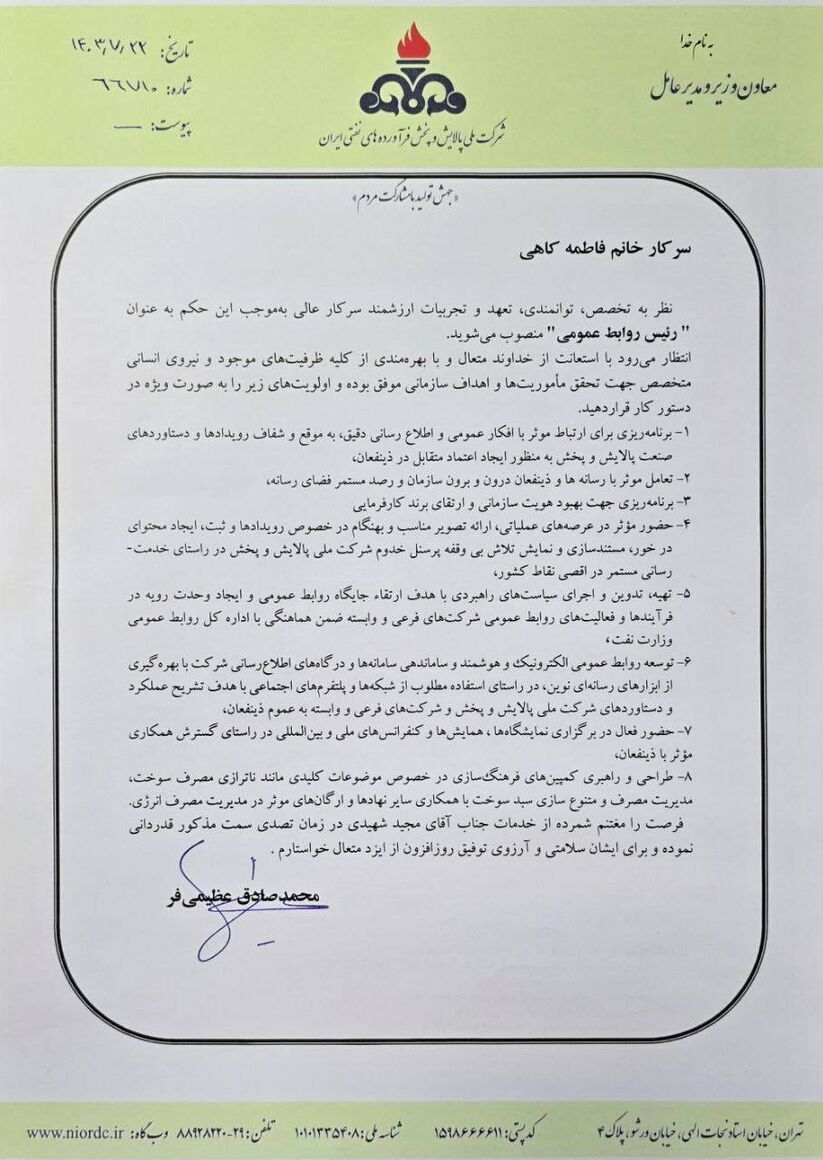 به نام خدا
معاون وزیر و مدیر عامل
شرکت ملی پالایش و پخش فرآورده های نفتی ایران
تاریخ: ۱۴۰۳/۷/۲۲
شماره: ۶۶۷۱۰
پیوست: —
«جهش تولید با مشارکت مردم»
سرکار خانم فاطمه کاهی
نظر به تخصص، توانمندی، تعهد و تجربیات ارزشمند سرکار عالی به‌موجب این حکم به عنوان
" رئیس روابط عمومی" منصوب می‌شوید.
انتظار می‌رود با استعانت از خداوند متعال و با بهره‌مندی از کلیه ظرفیت‌های موجود و نیروی انسانی
متخصص جهت تحقق مأموریت‌ها و اهداف سازمانی موفق بوده و اولویت‌های زیر را به صورت ویژه در
دستور کار قراردهید.
۱- برنامه‌ریزی برای ارتباط موثر با افکار عمومی و اطلاع رسانی دقیق، به موقع و شفاف رویدادها و دستاوردهای
صنعت پالایش و پخش به منظور ایجاد اعتماد متقابل در ذینفعان،
۲- تعامل موثر با رسانه ها و ذینفعان درون و برون سازمان و رصد مستمر فضای رسانه،
۳- برنامه‌ریزی جهت بهبود هویت سازمانی و ارتقای برند کارفرمایی
۴- حضور مؤثر در عرصه‌های عملیاتی، ارائه تصویر مناسب و بهنگام در خصوص رویدادها و ثبت، ایجاد محتوای
در خور، مستندسازی و نمایش تلاش بی وقفه پرسنل خدوم شرکت ملی پالایش و پخش در راستای خدمت-
رسانی مستمر در اقصی نقاط کشور،
۵- تهیه، تدوین و اجرای سیاست‌های راهبردی با هدف ارتقاء جایگاه روابط عمومی و ایجاد وحدت رویه در
فرآیندها و فعالیت‌های روابط عمومی شرکت‌های فرعی و وابسته ضمن هماهنگی با اداره کل روابط عمومی
وزارت نفت،
۶- توسعه روابط عمومی الکترونیک و هوشمند و ساماندهی سامانه‌ها و درگاه‌های اطلاع‌رسانی شرکت با بهره گیری
از ابزارهای رسانه‌ای نوین، در راستای استفاده مطلوب از شبکه‌ها و پلتفرم‌های اجتماعی با هدف تشریح عملکرد
و دستاوردهای شرکت ملی پالایش و پخش و شرکت‌های فرعی و وابسته به عموم ذینفعان،
۷- حضور فعال در برگزاری نمایشگاه‌ها ، همایش‌ها و کنفرانس‌های ملی و بین‌المللی در راستای گسترش همکاری
مؤثر با ذینفعان،
۸- طراحی و راهبری کمپین‌های فرهنگ‌سازی در خصوص موضوعات کلیدی مانند ناترازی مصرف سوخت،
مدیریت مصرف و متنوع سازی سبد سوخت با همکاری سایر نهادها و ارگان‌های موثر در مدیریت مصرف انرژی.
فرصت را مغتنم شمرده از خدمات جناب آقای مجید شهیدی در زمان تصدی سمت مذکور قدردانی
نموده و برای ایشان سلامتی و آرزوی توفیق روزافزون از ایزد متعال خواستارم .
محمدصادق عظیمی‌فر
تهران، خیابان استاد نجات الهی، خیابان ورشو، پلاک ۴ کد پستی: ۱۵۹۸۶۶۶۶۱۱ شناسه ملی: ۱۰۱۰۱۳۳۵۴۰۸ تلفن: ۲۹-۸۸۹۲۸۲۲۰ وب گاه: www.niordc.ir